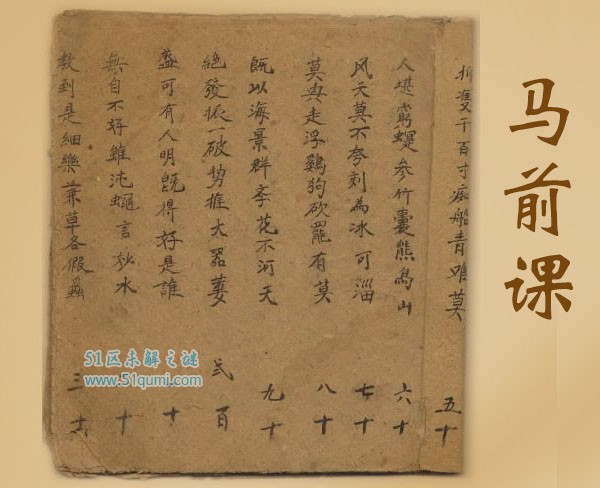 马前课
千百寸船青难莫 五十
人堪窮参竹囊熊鳥山 六十
风天莫不夸刻為冰可淄 七十
莫與走浮鷄狗砍罷有莫 八十
既以海景群李花不河天 九十
絕發振一破势推大器萋 弍百
盖可有人明既得好是誰 十
無自不好雖沌蠅言秋水 十
教到是細樂蒹草各假蟲 三十
51区未解之谜
www.51qumi.com